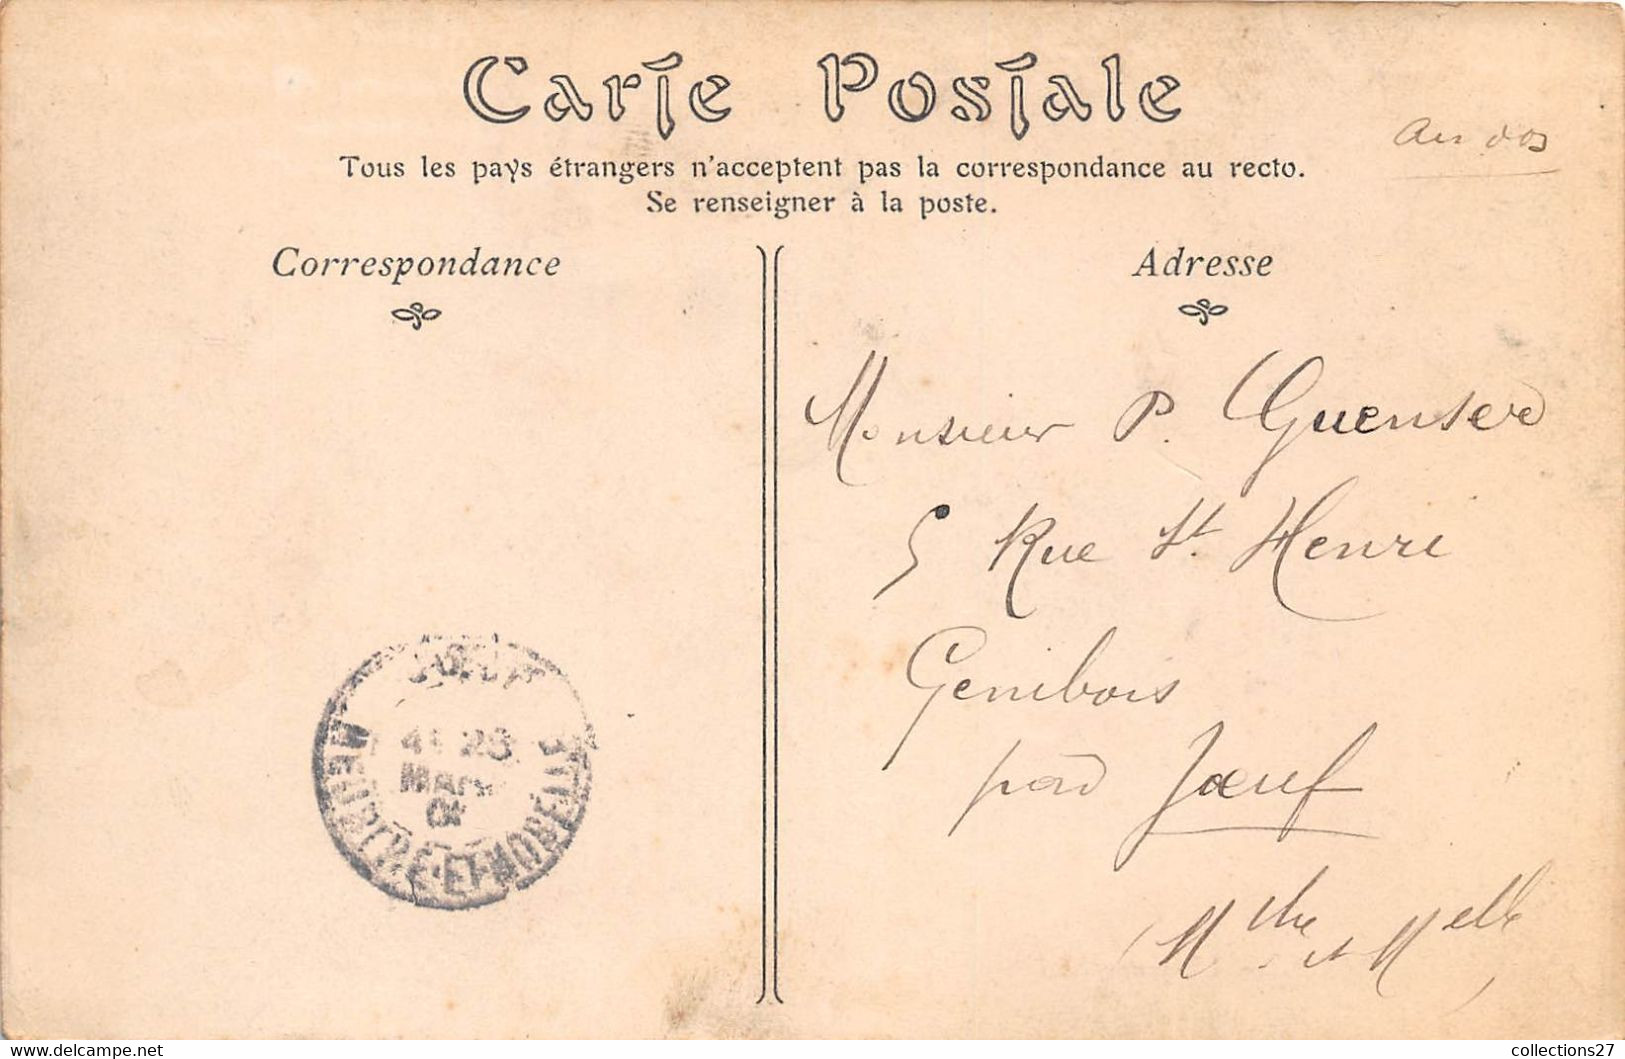 Carte Postale
Au dos
Tous les pays étrangers n'acceptent pas la correspondance au recto.
Se renseigner à la poste.
Correspondance
Adresse
Monsieur P. Guenser
5 Rue St. Henri
Genibois
par Jœuf
(Mthe et Melle)
JOEUF
28
MEURTHE-ET-MOSELLE
collections27